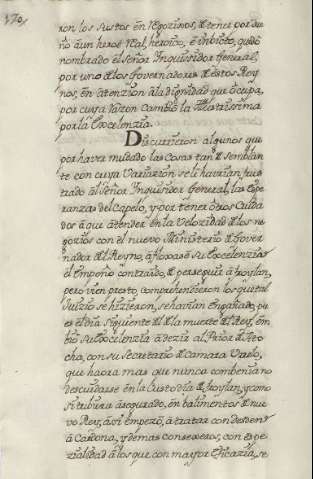 170
ron los sustos en regozixos, et tener por due
ño à un heroe Real, heroico, è invicto, quedò
nombrado el Señor Inquisidor General,
por uno de los Governadores de estos Rey
nos, en atenzion àla dignidad que òcupa,
por cuya razon cambiò la Illustrisima
por la Excelenzia.
Discurrieron algunos que
por haver mudado las cosas tan de semblan
te con cuya variazion se le havrian frus
trado al Señor Inquisidor General, las espe
ranzas del Capelo, y por tener òtros cuida
dos à que àtender en la velozidad de los ne
gozios con el nuevo Ministerio de Gover
nador del Reyno, àfloxase su Excelenzia
el empeño contraido, de perseguir à Froylan,
pero vien presto, comprehendieron los que tal
Juizio se hizieron, se havian engañado, pu
es el dia siguiente de la muerte del Rey, em
biò su Excelenzia à dezir al Prior de Ato
cha, con su Secretario de Camara Varlo,
que haora mas que nunca combenia no
descuidarse en la custodia de Froylan, y como
si tubiera àsegurado, en balimentos de nue
vo Rey, àsi empezò, à tratar con desden
à Cardona, y demas consexeros, con espe
zialidad à los que con mayor eficazia, se